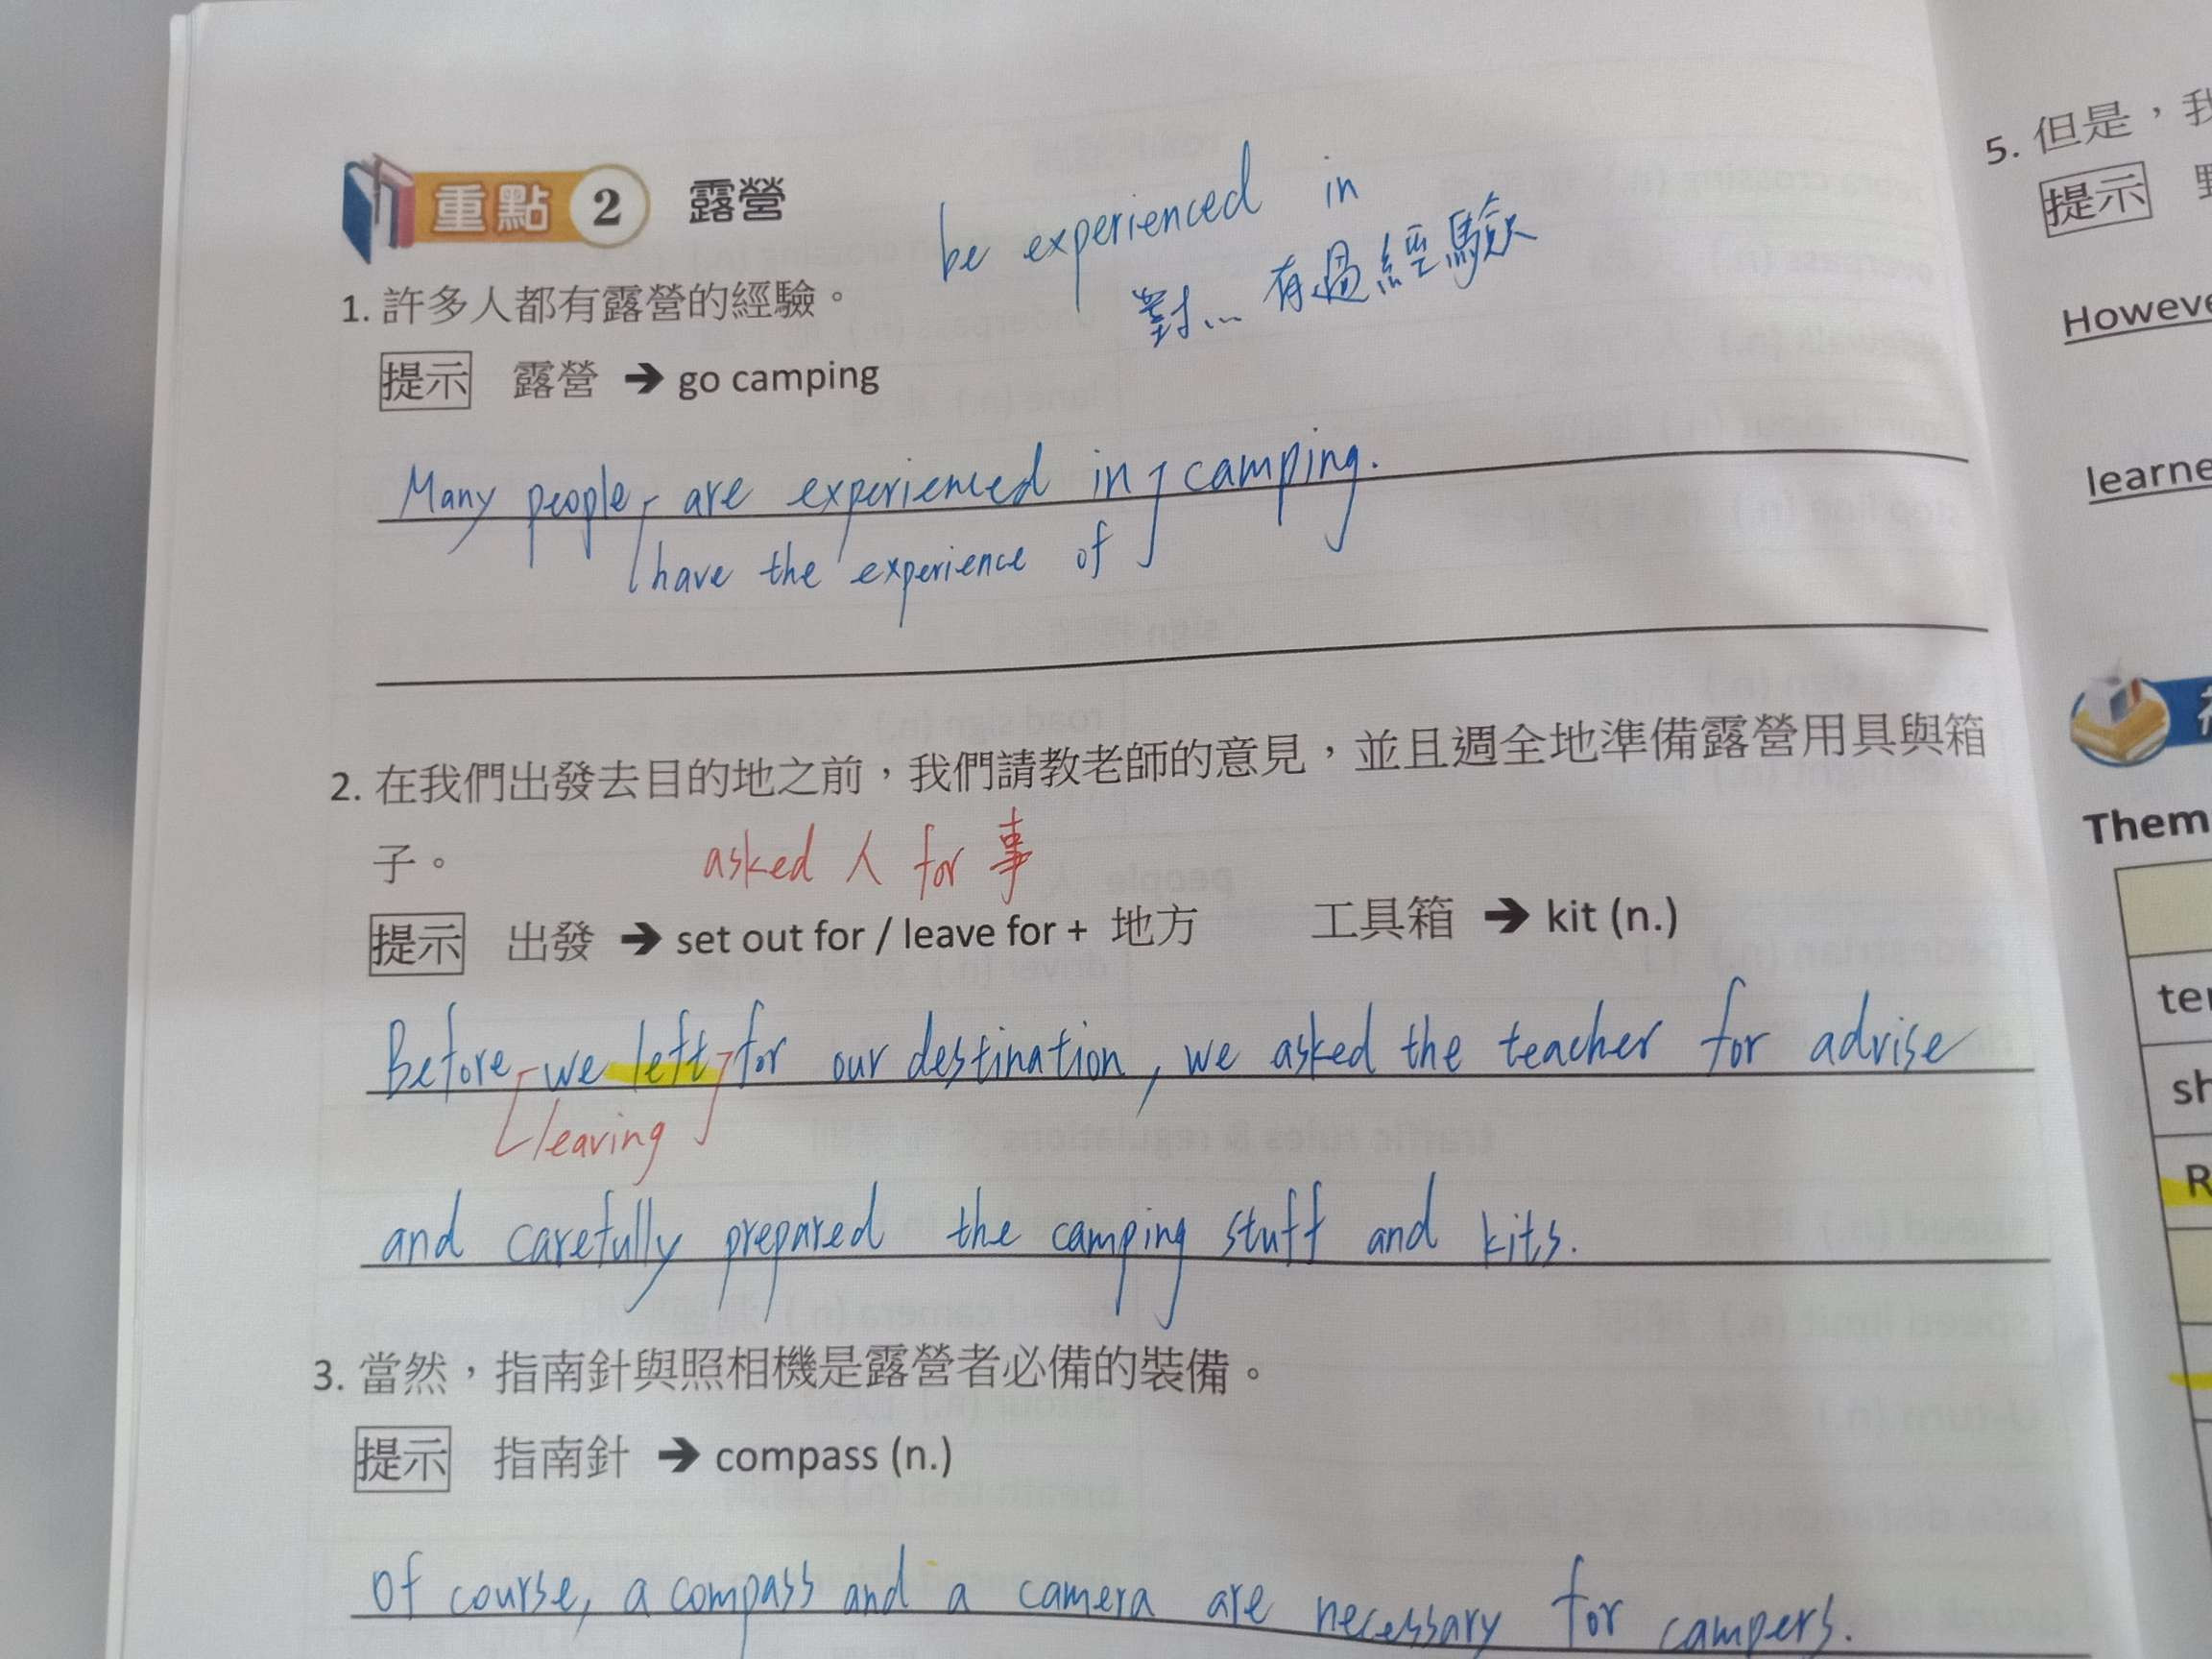 重點 2 露營
be experienced in
對… 有過經驗
1. 許多人都有露營的經驗。
提示 露營 → go camping
Many people are experienced in camping.
have the experience of
2. 在我們出發去目的地之前，我們請教老師的意見，並且週全地準備露營用具與箱
子。
asked 人 for 事
提示 出發 → set out for / leave for + 地方 工具箱 → kit (n.)
Before we left for our destination, we asked the teacher for advise
leaving
and carefully prepared the camping stuff and kits.
3. 當然，指南針與照相機是露營者必備的裝備。
提示 指南針 → compass (n.)
of course, a compass and a camera are necessary for campers.
5. 但是，我
提示
Howeve
learne
Them
te
sh
R